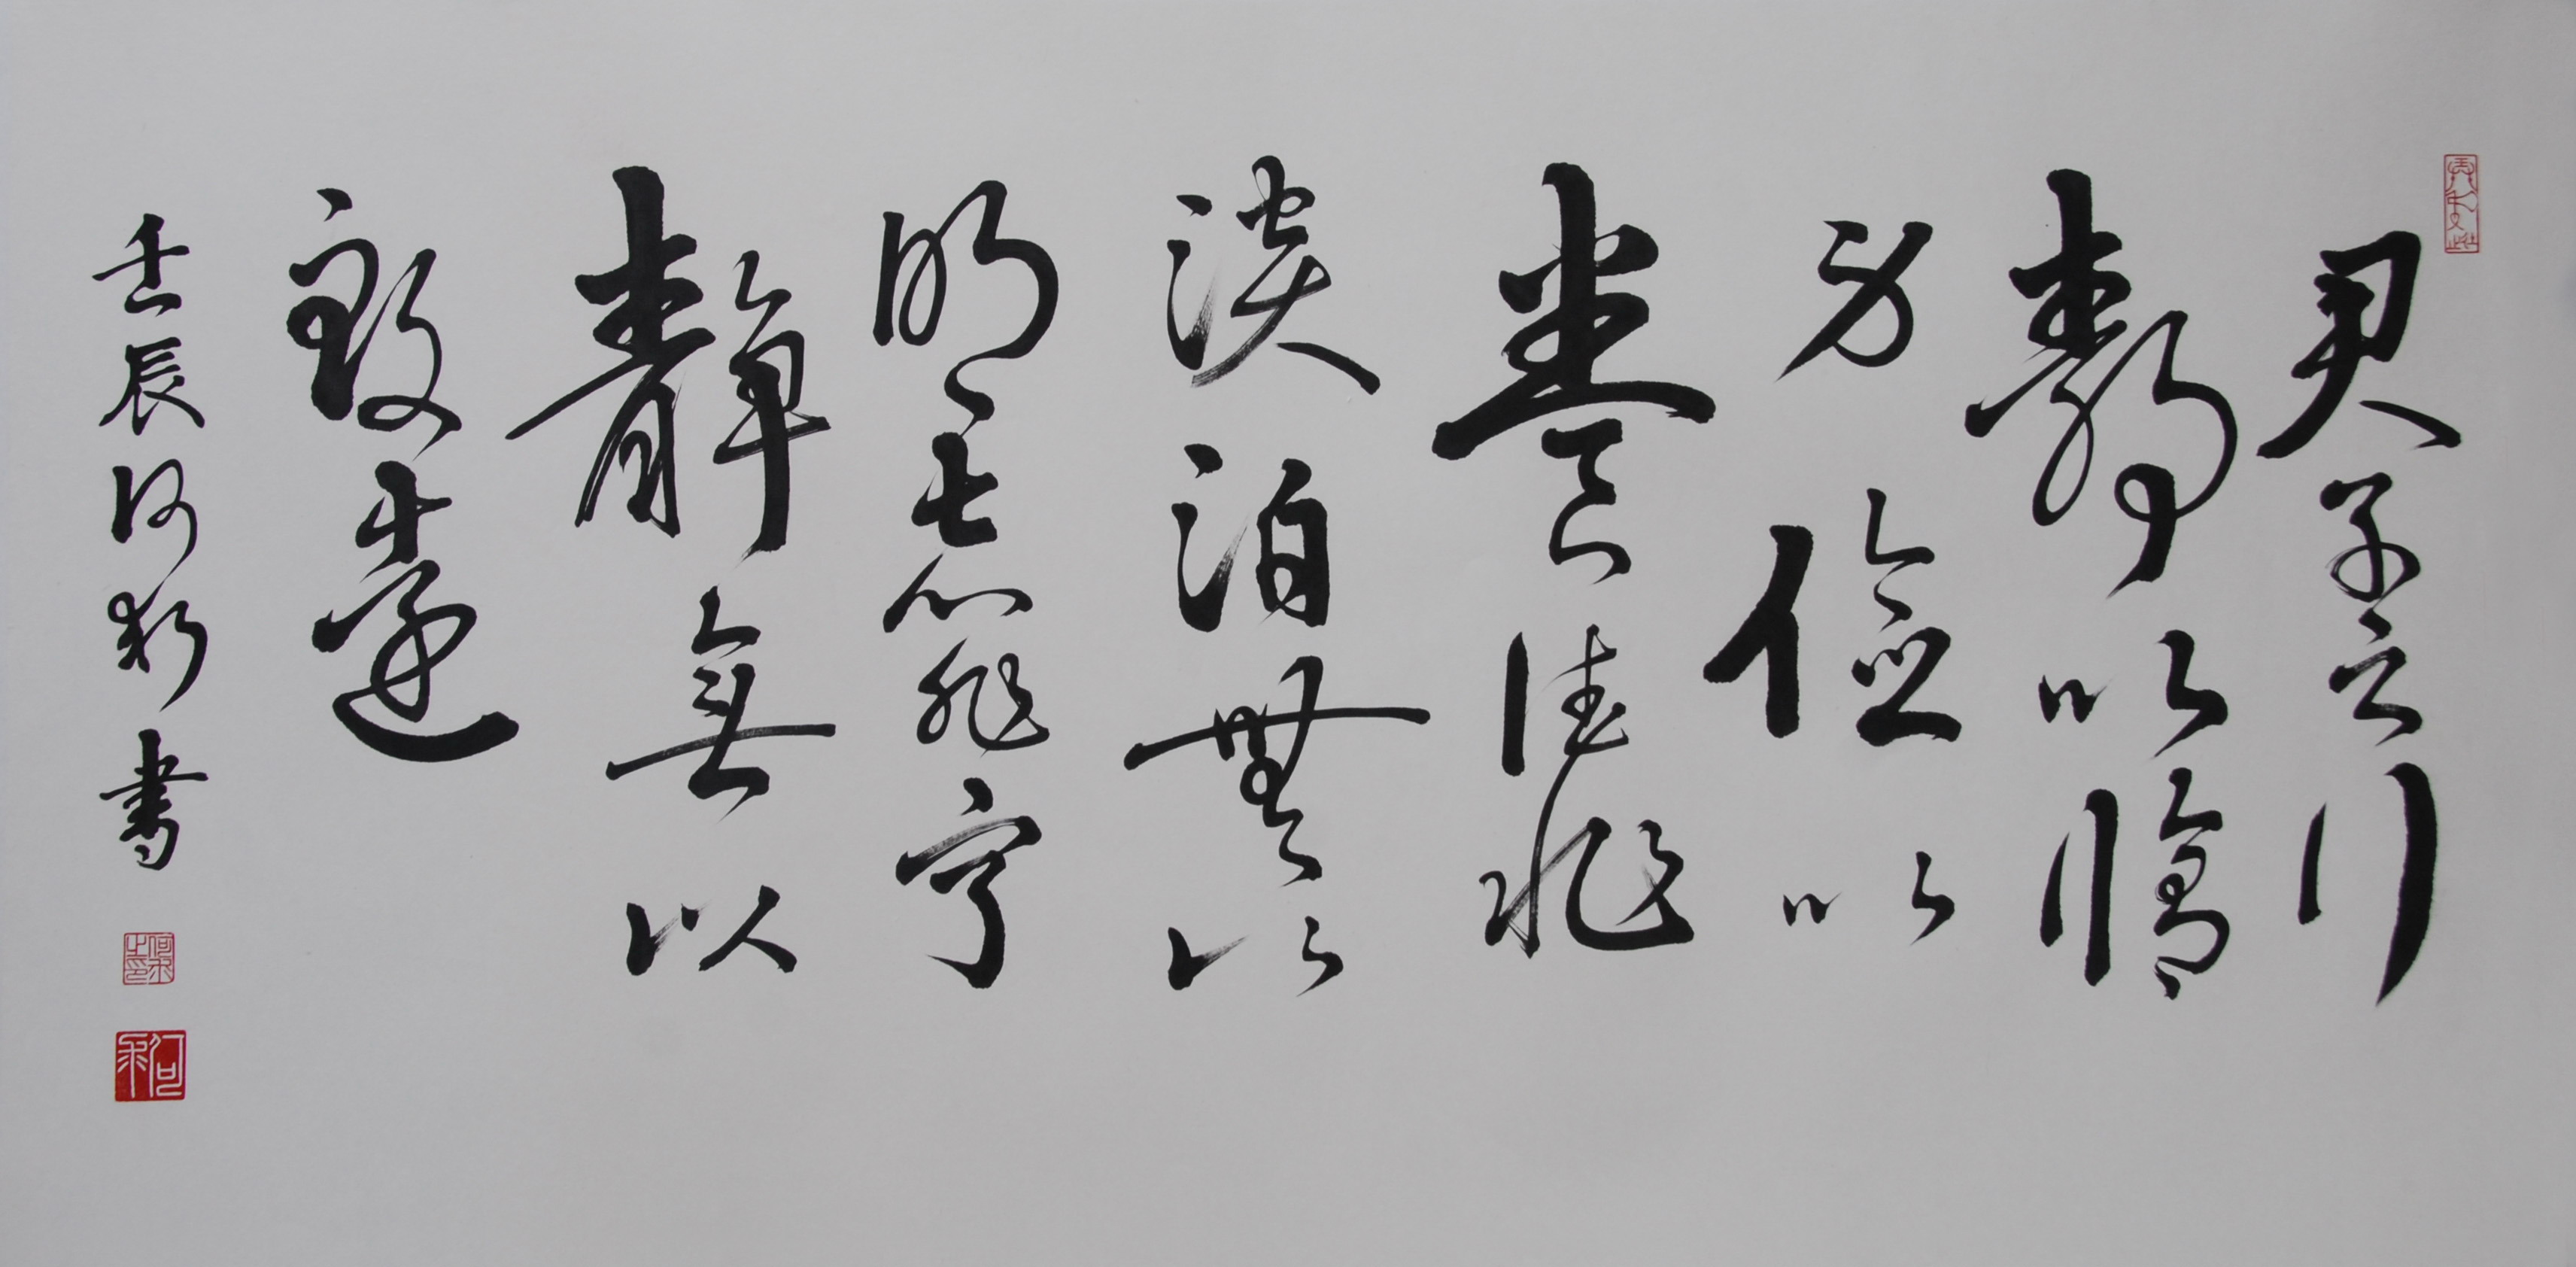 君子之行
靜以脩
身儉以
養德非
淡泊無以
明志非宁
靜無以
致遠
壬辰何書